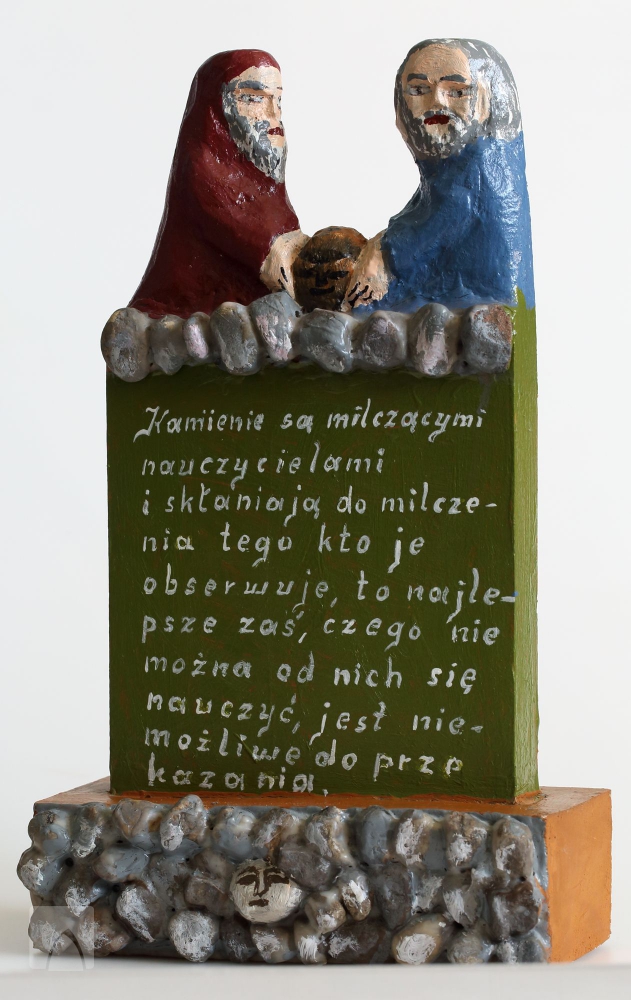 Kamienie są milczącymi
nauczycielami
i skłaniają do milcze-
nia tego kto je
obserwuje, to najle-
psze zaś, czego nie
można od nich się
nauczyć, jest nie-
możliwe do prze
kazania.